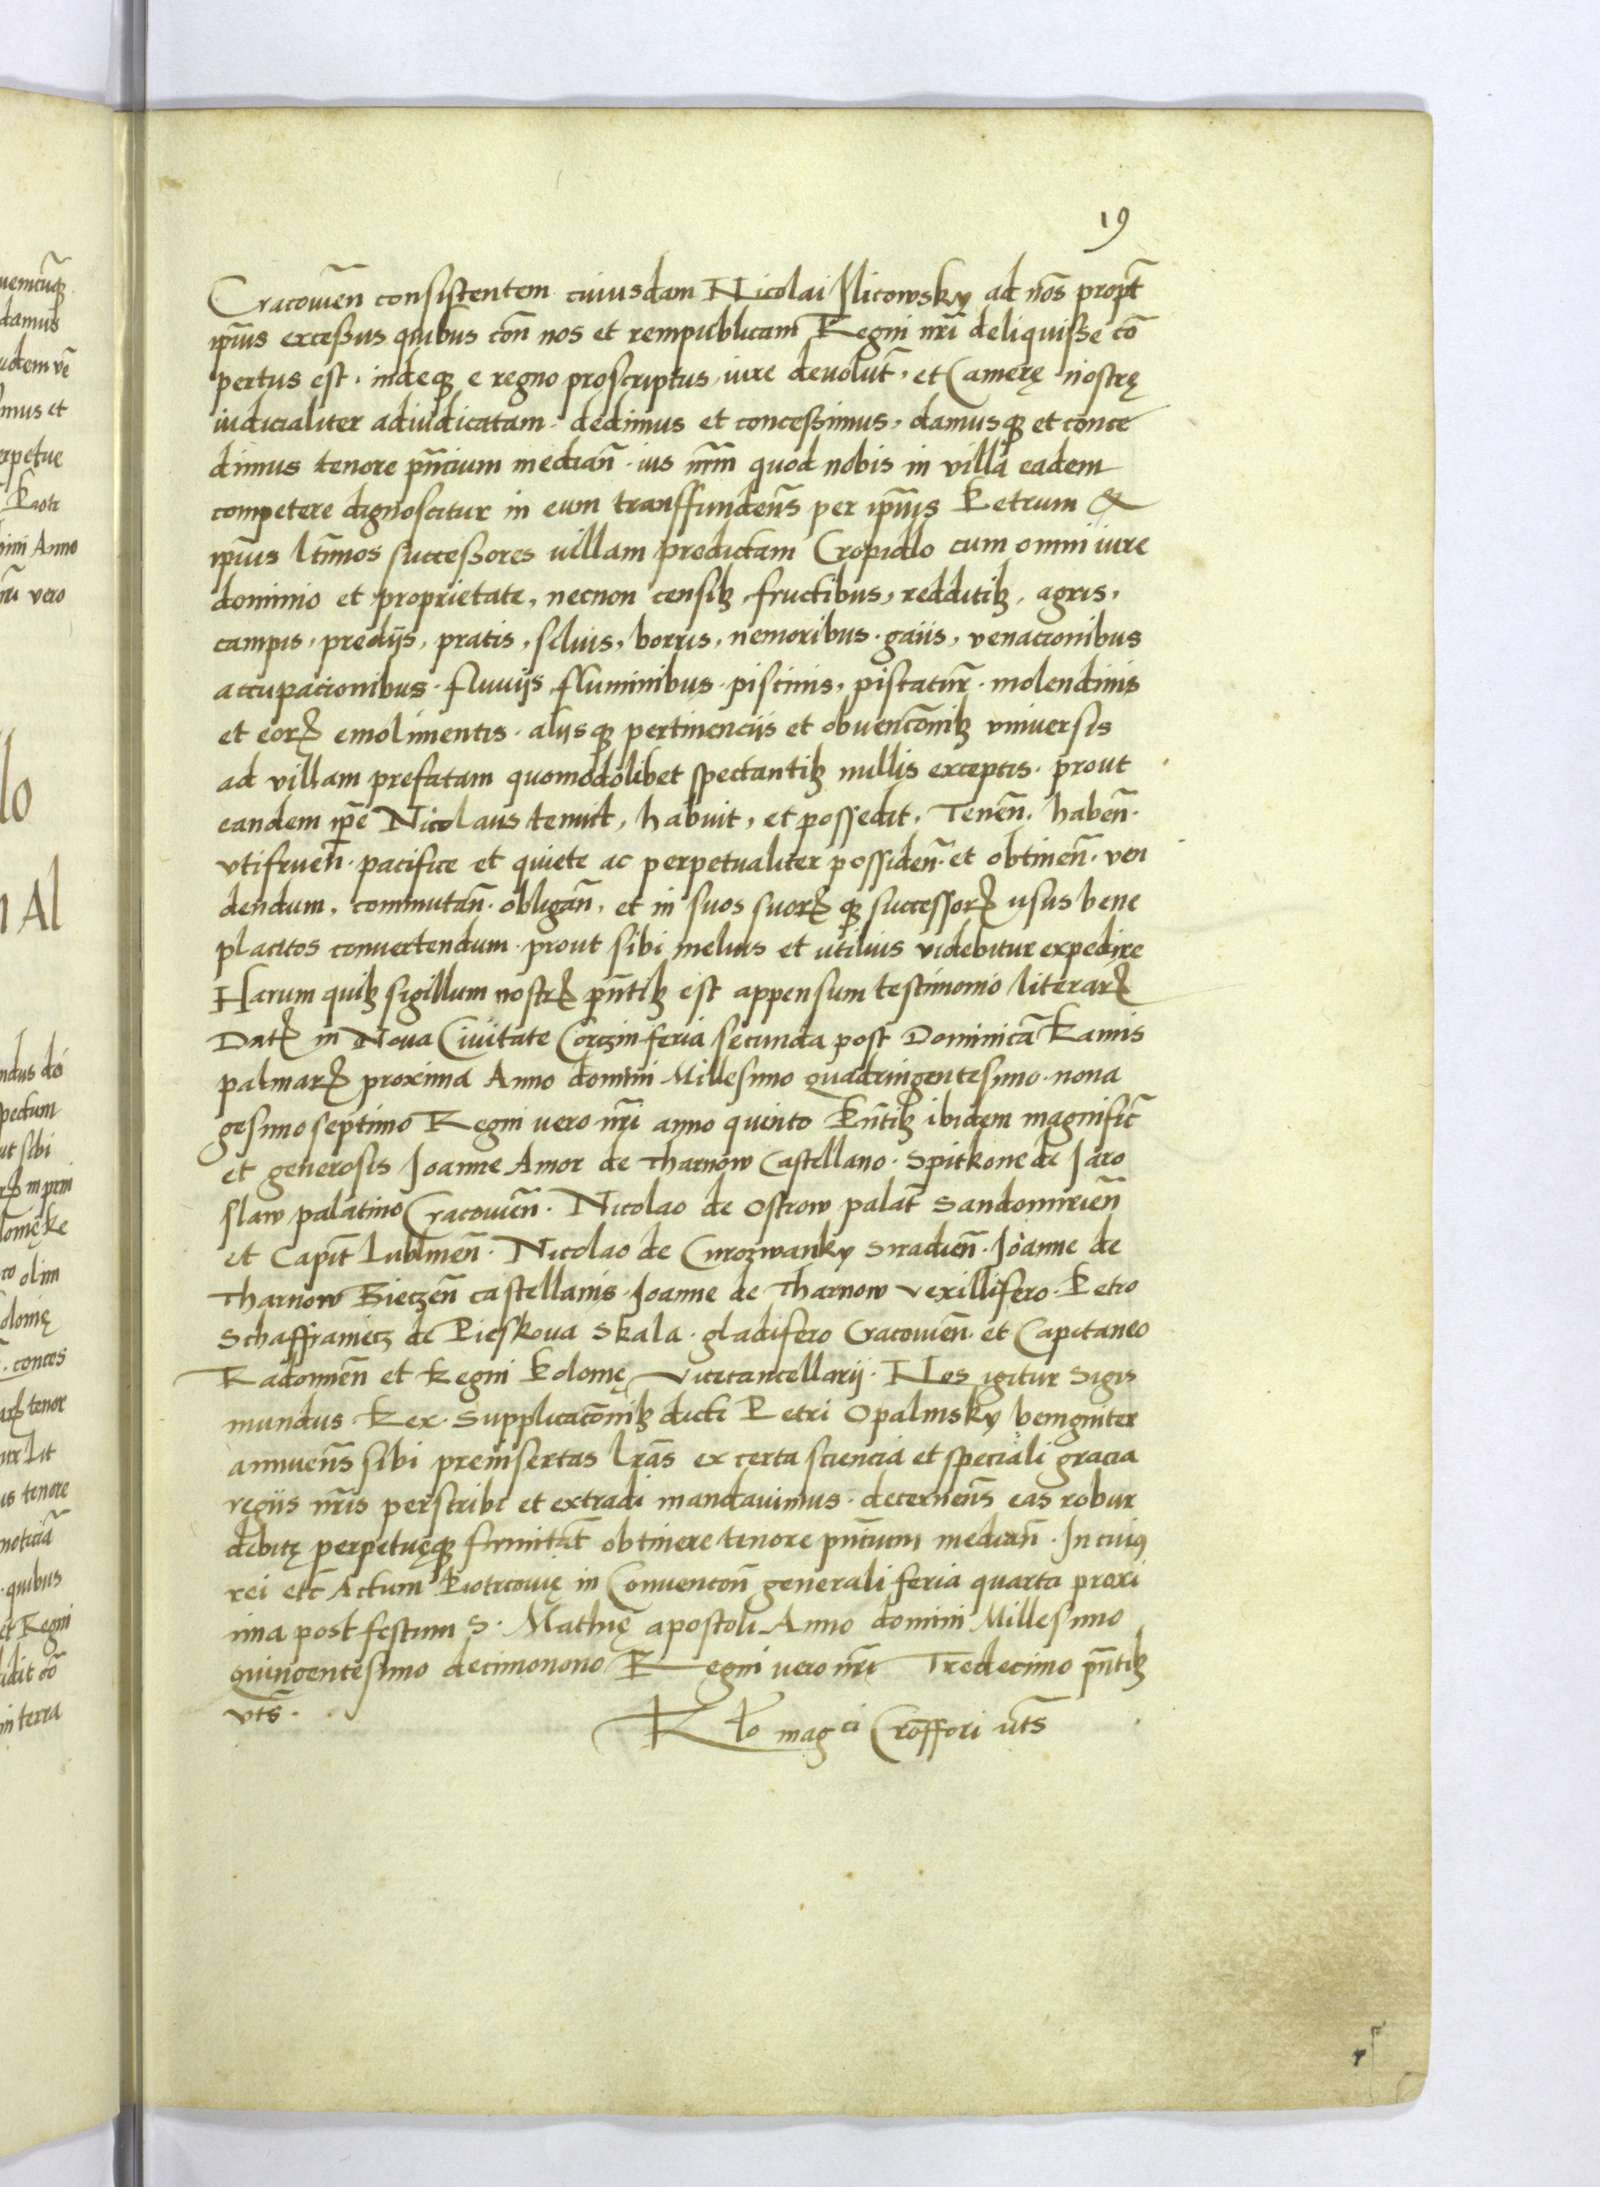 19
Cracovien̄ consistentem cuiusdam Nicolai Ilicowsky ad nos̄ propt̄
ip̄ius excessus quibus con̄ nos et rempublicam Regni nr̄i deliquisse cō
pertus est, indeqȝ e regno proscriptus, iure devolut̄, et Camerę nostrę
iudicialiter adiudicatam. dedimus et concessimus, damusqȝ et conce
dimus tenore pn̄cium median̄. ius nr̄m quod nobis in villa eadem
competere dignoscitur in eum transffunden̄s per ip̄ius Petrum &
ip̄ius ltīmos successores villam predictam Cropidlo cum omni iure
dominio et proprietate, necnon censibȝ, fructibus, redditibȝ, agris,
campis, predijs, pratis, siluis, borris, nemoribus. gaiis, venacionibus
aucupacionibus. fluuijs fluminibus. piscinis, piscatur̄. molendinis
et eorꝝ emolimentis. alijsqȝ pertinencijs et obuencōnibȝ vniuersis
ad villam prefatam quomodolibet spectantibȝ nullis exceptis. prout
eandem ip̄e Nicolaus tenuit, habuit, et possedit, Tenen̄. haben̄.
vtifruen̄. pacifice et quiete ac perpetualiter possiden̄. et obtinen̄. ven
dendum, commutan̄. obligan̄, et in suos suorꝝqȝ successorꝝ usus bene
placitos convertendum. prout sibi melius et utilius videbitur expedire
Harum quibȝ sigillum nostrꝝ pn̄tibȝ est appensum testimonio literarꝝ
Datꝝ in Nova Ciuitate Corczin feria secunda post Dominicā Ramis
palmarꝝ proxima Anno domini Millesimo quadringentesimo. nona
gesimo septimo Regni vero nr̄i anno quinto Pn̄tibȝ ibidem magnific̄
et generosis Joanne Amor de Tharnow Castellano. Spitkone de Jaro
slaw palatino Cracovien̄. Nicolao de Ostrow palat̄ Sandomirien̄
et Capit̄ Lublinen̄. Nicolao de Curozwanky Siradien̄. Joanne de
Tharnow Bieczen̄ castellanis. Joanne de Tharnow vexillifero. Petro
Schaffraniecz de Pieskova Skala. gladifero Cracovien̄. et Capitaneo
Radomien̄ et Regni Polonię Vicecancellarij. Nos igitur Sigis
mundus Rex. Supplicacōnibȝ dicti Petri Opalinsky benigniter
annuen̄s sibi preinsertas lrās ex certa sciencia et speciali gracia
regiis nr̄is perscribi et extradi mandauimus. decernen̄s eas robur
debitę perpetuęqȝ firmitat̄ obtinere tenore pn̄cium median̄. In cuiꝯ
rei etc̄ Actum Piotrcovię in Convencōn̄ generali feria quarta proxi
ma post festum S. Mathię apostoli Anno domini Millesimo
quingentesimo decimonono Regni vero nr̄i Tredecimo pn̄tibȝ
vts̄.
Rlō magci Croffori vts̄